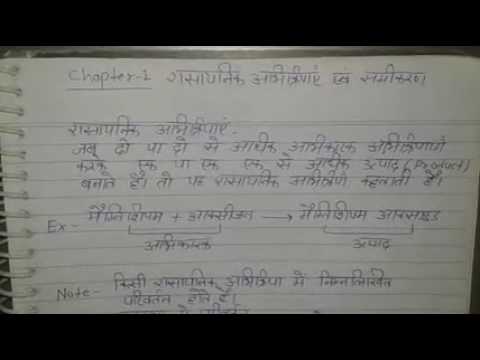 Chapter-1 रासायनिक अभिक्रियाएं एवं समीकरण
रासायनिक अभिक्रियाएं -
जब दो या दो से अधिक अभिकारक अभिक्रियाएं
करके एक या एक से अधिक उत्पाद (Product)
बनाते हैं। तो यह रासायनिक अभिक्रिया कहलाती है।
Ex- मैग्निशियम + आक्सीजन → मैग्निशियम आक्साइड
अभिकारक उत्पाद
Note- किसी रासायनिक अभिक्रिया में निम्नलिखित
परिवर्तन होते हैं।
में परिवर्तन